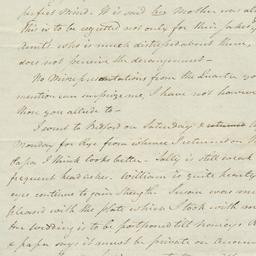 perfect mind. It is said & Mother was al
This is to be regretted not only for their sakes
Aunts who is much distressed about them,
does not perceive the derangement —
No more presentations from the quarter y
mention can surprize me, I have not however
those you allude to —
I went to Bedford on Saturday & returned
Monday for Rye from whence I returned on
Papa I think looks better. Sally is still weak
frequent headaches. William is quite hearty
eyes continue to gain strength. Susan was
pleased with the plate which I took with me
The wedding is to be postponed till
& papa says it must be private on accoun